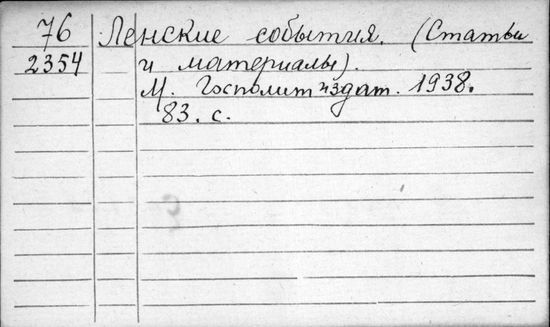 76 Ленские события. (Статьи
2354 и материалы).
М. Госполитиздат. 1938.
83. с.